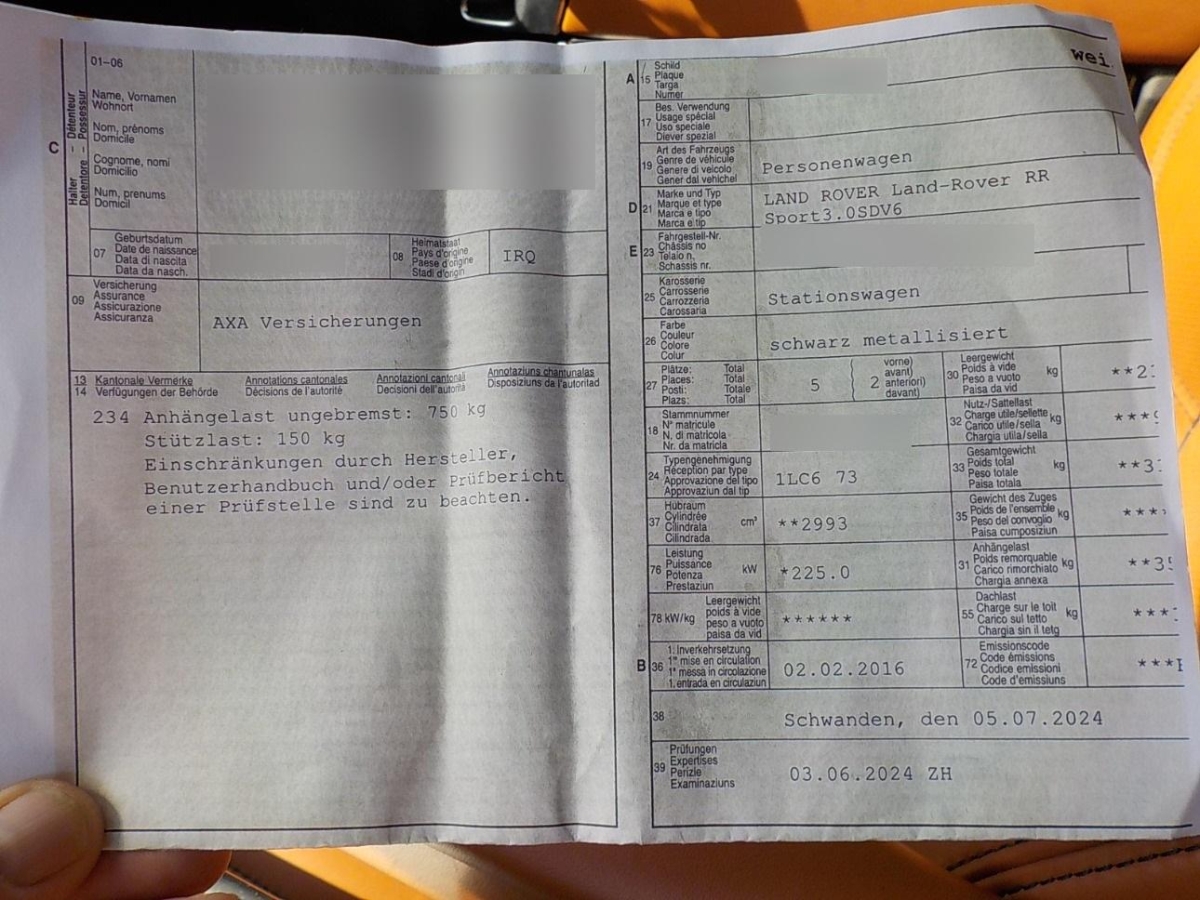 01-06
Halter - Détenteur
Detentore - Possessur
C
Name, Vornamen
Wohnort
Nom, prénoms
Domicile
Cognome, nomi
Domicilio
Num, prenums
Domicil
07
Geburtsdatum
Date de naissance
Data di nascita
Data da nasch.
08
Heimatstaat
Pays d'origine
Paese d'origine
Stadi d'origin
IRQ
09
Versicherung
Assurance
Assicurazione
Assicuranza
AXA Versicherungen
13 Kantonale Vermerke Annotations cantonales Annotazioni cantonali Annotaziuns chantunalas
14 Verfügungen der Behörde Décisions de l'autorité Decisioni dell'autorità Disposiziuns da l'autoritad
234 Anhängelast ungebremst: 750 kg
Stützlast: 150 kg
Einschränkungen durch Hersteller,
Benutzerhandbuch und/oder Prüfbericht
einer Prüfstelle sind zu beachten.
A 15
Schild
Plaque
Targa
Numer
wei
17
Bes. Verwendung
Usage spécial
Uso speciale
Diever spezial
19
Art des Fahrzeugs
Genre de véhicule
Genere di veicolo
Gener dal vehichel
Personenwagen
D 21
Marke und Typ
Marque et type
Marca e tipo
Marca e tip
LAND ROVER Land-Rover RR
Sport3.0SDV6
E 23
Fahrgestell-Nr.
Châssis no
Telaio n.
Schassis nr.
25
Karosserie
Carrosserie
Carrozzeria
Carossaria
Stationswagen
26
Farbe
Couleur
Colore
Colur
schwarz metallisiert
27
Plätze: Total
Places: Total
Posti: Totale
Plazs: Total
5
2
vorne)
avant)
anteriori)
davant)
30
Leergewicht
Poids à vide
Peso a vuoto
Paisa da vid
kg
**2
18
Stammnummer
N° matricule
N. di matricola
Nr. da matricla
32
Nutz-/Sattellast
Charge utile/sellette
Carico utile/sella
Chargia utila/sella
kg
***
24
Typengenehmigung
Réception par type
Approvazione del tipo
Approvaziun dal tip
1LC6 73
33
Gesamtgewicht
Poids total
Peso totale
Paisa totala
kg
**3
37
Hubraum
Cylindrée
Cilindrata
Cilindrada
cm³
**2993
35
Gewicht des Zuges
Poids de l'ensemble
Peso del convoglio
Paisa cumposiziun
kg
***
76
Leistung
Puissance
Potenza
Prestaziun
kW
*225.0
31
Anhängelast
Poids remorquable
Carico rimorchiato
Chargia annexa
kg
**3
78 kW/kg
Leergewicht
poids à vide
peso a vuoto
paisa da vid
******
55
Dachlast
Charge sur le toit
Carico sul tetto
Chargia sin il tetg
kg
***
B 36
1. Inverkehrsetzung
1re mise en circulation
1a messa in circolazione
1. entrada en circulaziun
02.02.2016
72
Emissionscode
Code émissions
Codice emissioni
Code d'emissiuns
***
38
Schwanden, den 05.07.2024
39
Prüfungen
Expertises
Perizie
Examinaziuns
03.06.2024 ZH